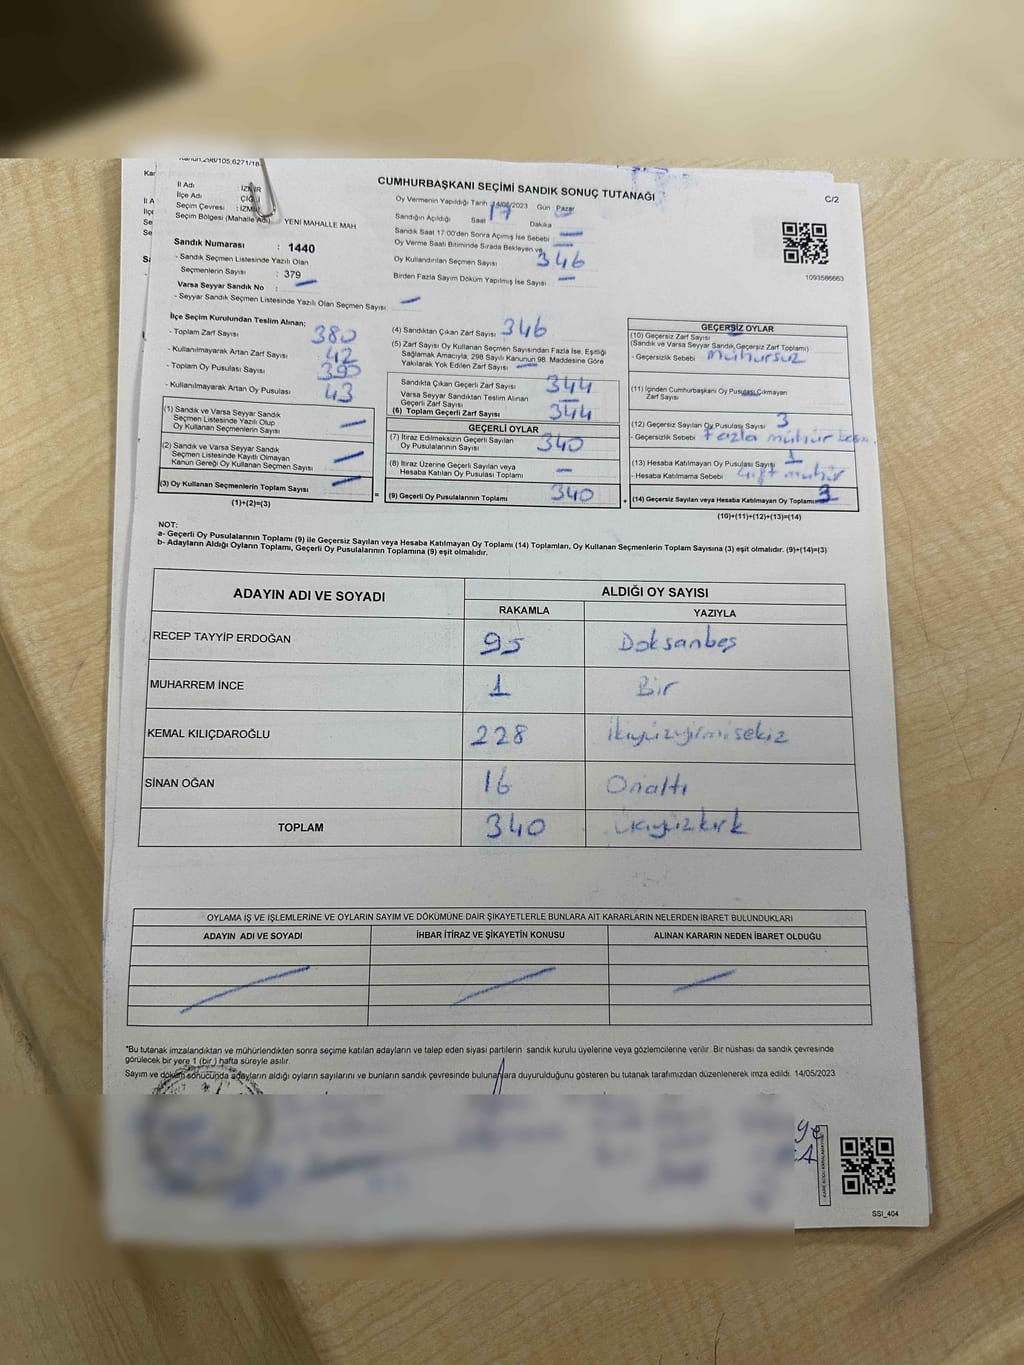 Kanun:298/105;6271/18-
CUMHURBAŞKANI SEÇİMİ SANDIK SONUÇ TUTANAĞI
C/2
İl Adı : İZMİR
İlçe Adı : ÇİĞLİ
Seçim Çevresi : İZMİR
Seçim Bölgesi (Mahalle Adı) YENİ MAHALLE MAH
Sandık Numarası : 1440
- Sandık Seçmen Listesinde Yazılı Olan
Seçmenlerin Sayısı : 379
Varsa Seyyar Sandık No : —
- Seyyar Sandık Seçmen Listesinde Yazılı Olan Seçmen Sayısı —
Oy Vermenin Yapıldığı Tarih 14/05/2023 Gün : Pazar
Sandığın Açıldığı Saat 17 Dakika —
Sandık Saat 17:00'den Sonra Açımış İse Sebebi —
Oy Verme Saati Bitiminde Sırada Bekleyen ve
Oy Kullandırılan Seçmen Sayısı 346
Birden Fazla Sayım Döküm Yapılmış İse Sayısı —
1093586663
İlçe Seçim Kurulundan Teslim Alınan;
- Toplam Zarf Sayısı 380
- Kullanılmayarak Artan Zarf Sayısı 42
- Toplam Oy Pusulası Sayısı 390
- Kullanılmayarak Artan Oy Pusulası 43
(1) Sandık ve Varsa Seyyar Sandık
Seçmen Listesinde Yazılı Olup
Oy Kullanan Seçmenlerin Sayısı —
(2) Sandık ve Varsa Seyyar Sandık
Seçmen Listesinde Kayıtlı Olmayan
Kanun Gereği Oy Kullanan Seçmen Sayısı —
(3) Oy Kullanan Seçmenlerin Toplam Sayısı —
(1)+(2)=(3)
=
(4) Sandıktan Çıkan Zarf Sayısı 346
(5) Zarf Sayısı Oy Kullanan Seçmen Sayısından Fazla İse, Eşitliği
Sağlamak Amacıyla, 298 Sayılı Kanunun 98. Maddesine Göre
Yakılarak Yok Edilen Zarf Sayısı —
Sandıkta Çıkan Geçerli Zarf Sayısı 344
Varsa Seyyar Sandıktan Teslim Alınan
Geçerli Zarf Sayısı —
(6) Toplam Geçerli Zarf Sayısı 344
GEÇERLİ OYLAR
(7) İtiraz Edilmeksizin Geçerli Sayılan
Oy Pusulasının Sayısı 340
(8) İtiraz Üzerine Geçerli Sayılan veya
Hesaba Katılan Oy Pusulası Toplamı —
(9) Geçerli Oy Pusulalarının Toplamı 340
+
GEÇERSİZ OYLAR
(10) Geçersiz Zarf Sayısı 2
(Sandık ve Varsa Seyyar Sandık Geçersiz Zarf Toplamı)
- Geçersizlik Sebebi mühürsüz
(11) İçinden Cumhurbaşkanı Oy Pusulası Çıkmayan
Zarf Sayısı —
(12) Geçersiz Sayılan Oy Pusulası Sayısı 3
- Geçersizlik Sebebi Fazla mühür
(13) Hesaba Katılmayan Oy Pusulası Sayısı 1
- Hesaba Katılmama Sebebi Çift mühür
(14) Geçersiz Sayılan veya Hesaba Katılmayan Oy Toplamı 3
(10)+(11)+(12)+(13)=(14)
NOT:
a- Geçerli Oy Pusulalarının Toplamı (9) ile Geçersiz Sayılan veya Hesaba Katılmayan Oy Toplamı (14) Toplamları, Oy Kullanan Seçmenlerin Toplam Sayısına (3) eşit olmalıdır. (9)+(14)=(3)
b- Adayların Aldığı Oyların Toplamı, Geçerli Oy Pusulalarının Toplamına (9) eşit olmalıdır.
ADAYIN ADI VE SOYADI ALDIĞI OY SAYISI
RAKAMLA YAZIYLA
RECEP TAYYİP ERDOĞAN 95 Doksanbeş
MUHARREM İNCE 1 Bir
KEMAL KILIÇDAROĞLU 228 İkiyüzyirmisekiz
SİNAN OĞAN 16 Onaltı
TOPLAM 340
OYLAMA İŞ VE İŞLEMLERİNE VE OYLARIN SAYIM VE DÖKÜMÜNE DAİR ŞİKAYETLERLE BUNLARA AİT KARARLARIN NELERDEN İBARET BULUNDUKLARI
ADAYIN ADI VE SOYADI İHBAR İTİRAZ VE ŞİKAYETİN KONUSU ALINAN KARARIN NEDEN İBARET OLDUĞU
*Bu tutanak imzalandıktan ve mühürlendikten sonra seçime katılan adayların ve talep eden siyasi partilerin sandık kurulu üyelerine veya gözlemcilerine verilir. Bir nüshası da sandık çevresinde
görülecek bir yere 1 (bir ) hafta süreyle asılır.
Sayım ve döküm sonucunda adayların aldığı oyların sayılarını ve bunların sandık çevresinde bulunanlara duyurulduğunu gösteren bu tutanak tarafımızdan düzenlenerek imza edildi. 14/05/2023
SSI_404